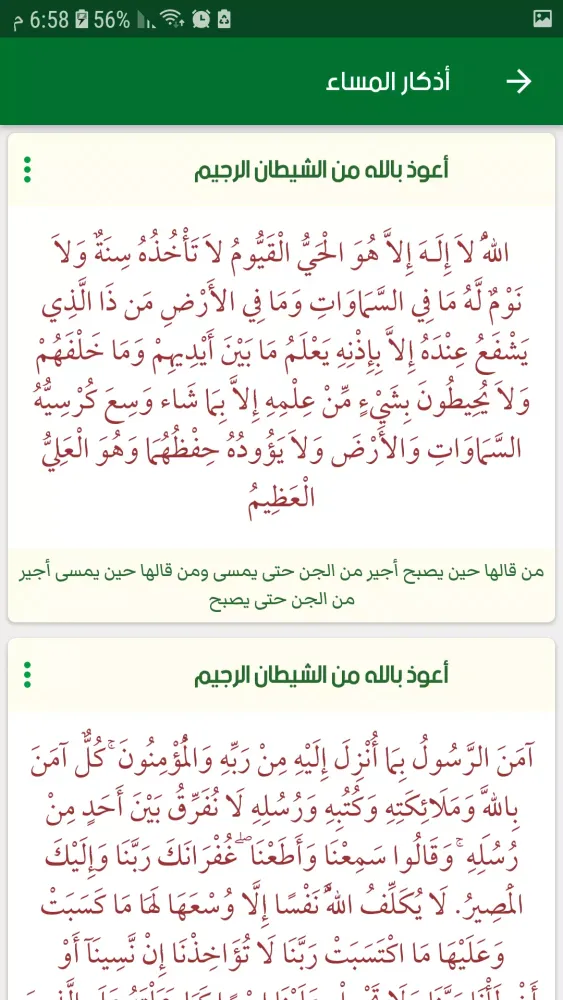 6:58 م 56%
أذكار المساء
أعوذ بالله من الشيطان الرجيم
اللّهُ لاَ إِلَـهَ إِلاَّ هُوَ الْحَيُّ الْقَيُّومُ لاَ تَأْخُذُهُ سِنَةٌ وَلاَ
نَوْمٌ لَّهُ مَا فِي السَّمَاوَاتِ وَمَا فِي الأَرْضِ مَن ذَا الَّذِي
يَشْفَعُ عِنْدَهُ إِلاَّ بِإِذْنِهِ يَعْلَمُ مَا بَيْنَ أَيْدِيهِمْ وَمَا خَلْفَهُمْ
وَلاَ يُحِيطُونَ بِشَيْءٍ مِّنْ عِلْمِهِ إِلاَّ بِمَا شَاء وَسِعَ كُرْسِيُّهُ
السَّمَاوَاتِ وَالأَرْضَ وَلاَ يَؤُودُهُ حِفْظُهُمَا وَهُوَ الْعَلِيُّ
الْعَظِيمُ
من قالها حين يصبح أجير من الجن حتى يمسى ومن قالها حين يمسى أجير
من الجن حتى يصبح
أعوذ بالله من الشيطان الرجيم
آمَنَ الرَّسُولُ بِمَا أُنْزِلَ إِلَيْهِ مِنْ رَبِّهِ وَالْمُؤْمِنُونَ ۚ كُلٌّ آمَنَ
بِاللَّهِ وَمَلَائِكَتِهِ وَكُتُبِهِ وَرُسُلِهِ لَا نُفَرِّقُ بَيْنَ أَحَدٍ مِنْ
رُسُلِهِ ۚ وَقَالُوا سَمِعْنَا وَأَطَعْنَا ۖ غُفْرَانَكَ رَبَّنَا وَإِلَيْكَ
الْمَصِيرُ. لَا يُكَلِّفُ اللَّهُ نَفْسًا إِلَّا وُسْعَهَا لَهَا مَا كَسَبَتْ
وَعَلَيْهَا مَا اكْتَسَبَتْ رَبَّنَا لَا تُؤَاخِذْنَا إِنْ نَّسِينَآ أَوْ